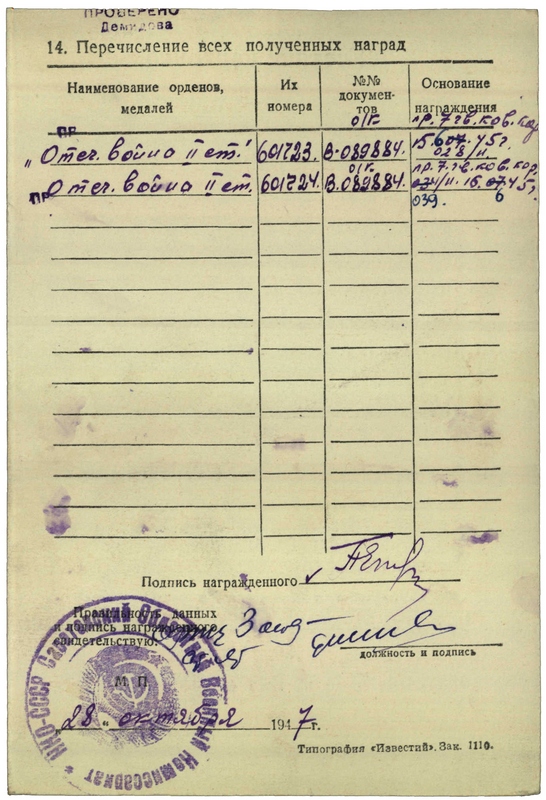 ПРОВЕРЕНО
Демидова
14. Перечисление всех полученных наград
Наименование орденов, медалей
Их номера
№№ документов
Основание награждения
ПР
„Отеч. война II ст." 601723. о/к. В-089884. пр. 7 гв. кав. кор.
028/н
ПР
Отеч. война II ст. 601724. о/к. В.089884. пр. 7 гв. кав. кор.
039. 6
Подпись награжденного
Правильность данных
и подпись награжденного
свидетельствую:
должность и подпись
М П
„28" октября 1947 г.
Типография «Известий». Зак. 1110.
НКО-СССР Военный Комиссариат